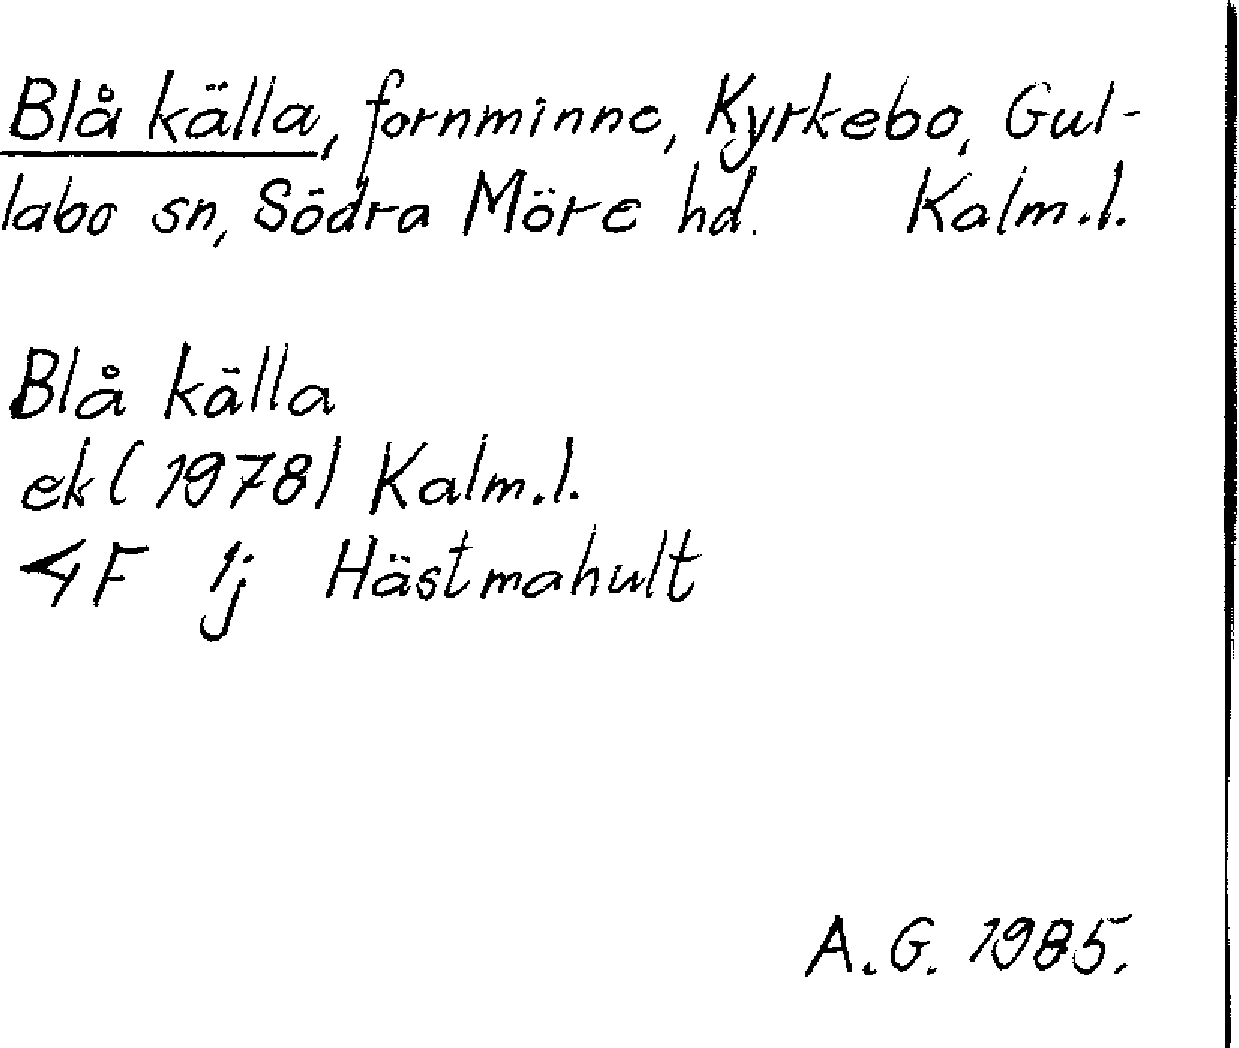 Blå källa, fornminne, Kyrkebo, Gul-
labo sn, Södra Möre hd. Kalm.l.
Blå källa
ek (1978) Kalm.l.
4F 1j Hästmahult
A.G. 1985.